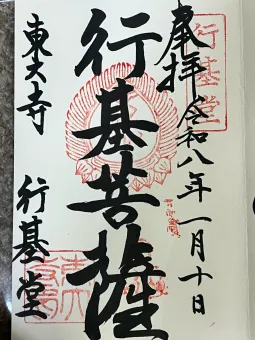 奉拝
令和八年一月十日
行基堂
行基菩薩
東大寺
行基堂